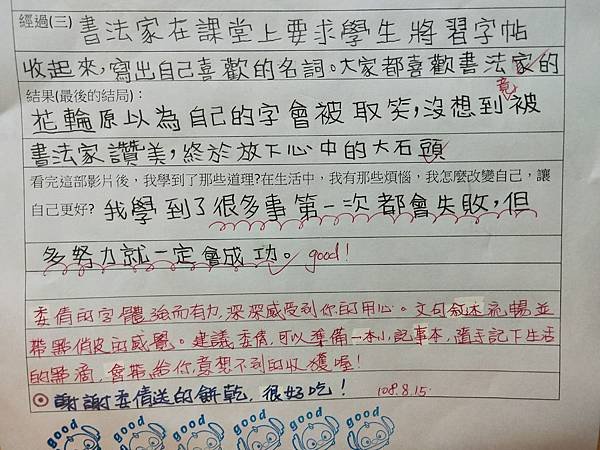 經過(三) 書法家在課堂上要求學生將習字帖
收起來,寫出自己喜歡的名詞。大家都喜歡書法家的
結果(最後的結局):
竟
花輪原以為自己的字會被取笑,沒想到被
書法家讚美,終於放下心中的大石頭
看完這部影片後,我學到了那些道理?在生活中,我有那些煩惱,我怎麼改變自己,讓
自己更好? 我學到了很多事第一次都會失敗,但
多努力就一定會成功。 good!
委倩的字體強而有力,深深感受到你的用心。文句敘述流暢並
帶點俏皮的感覺。建議委倩,可以準備一本小記事本,隨手記下生活
的點滴,會帶給你意想不到的收獲喔!
謝謝委倩送的餅乾,很好吃! 108.8.15
good good good good good good